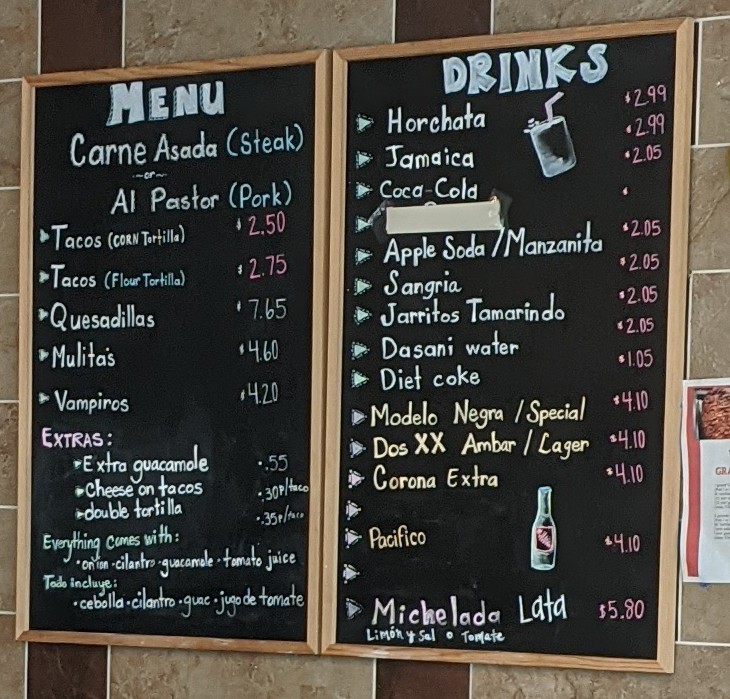 MENU
Carne Asada (Steak)
-or-
Al Pastor (Pork)
Tacos (CORN Tortilla) $2.50
Tacos (Flour Tortilla) $2.75
Quesadillas $7.65
Mulitas $4.60
Vampiros $4.20
EXTRAS:
Extra guacamole .55
Cheese on tacos .30p/taco
double tortilla .35p/taco
Everything comes with:
•onion•cilantro•guacamole•tomato juice
Todo incluye:
•cebolla•cilantro•guac•jugo de tomate
DRINKS
Horchata $2.99
Jamaica $2.99
Coca-Cola $2.05
$
Apple Soda/Manzanita $2.05
Sangria $2.05
Jarritos Tamarindo $2.05
Dasani water $2.05
Diet coke $1.05
Modelo Negra /Special $4.10
Dos XX Ambar/Lager $4.10
Corona Extra $4.10
Pacifico $4.10
Michelada Lata $5.80
Limón y Sal o Tomate